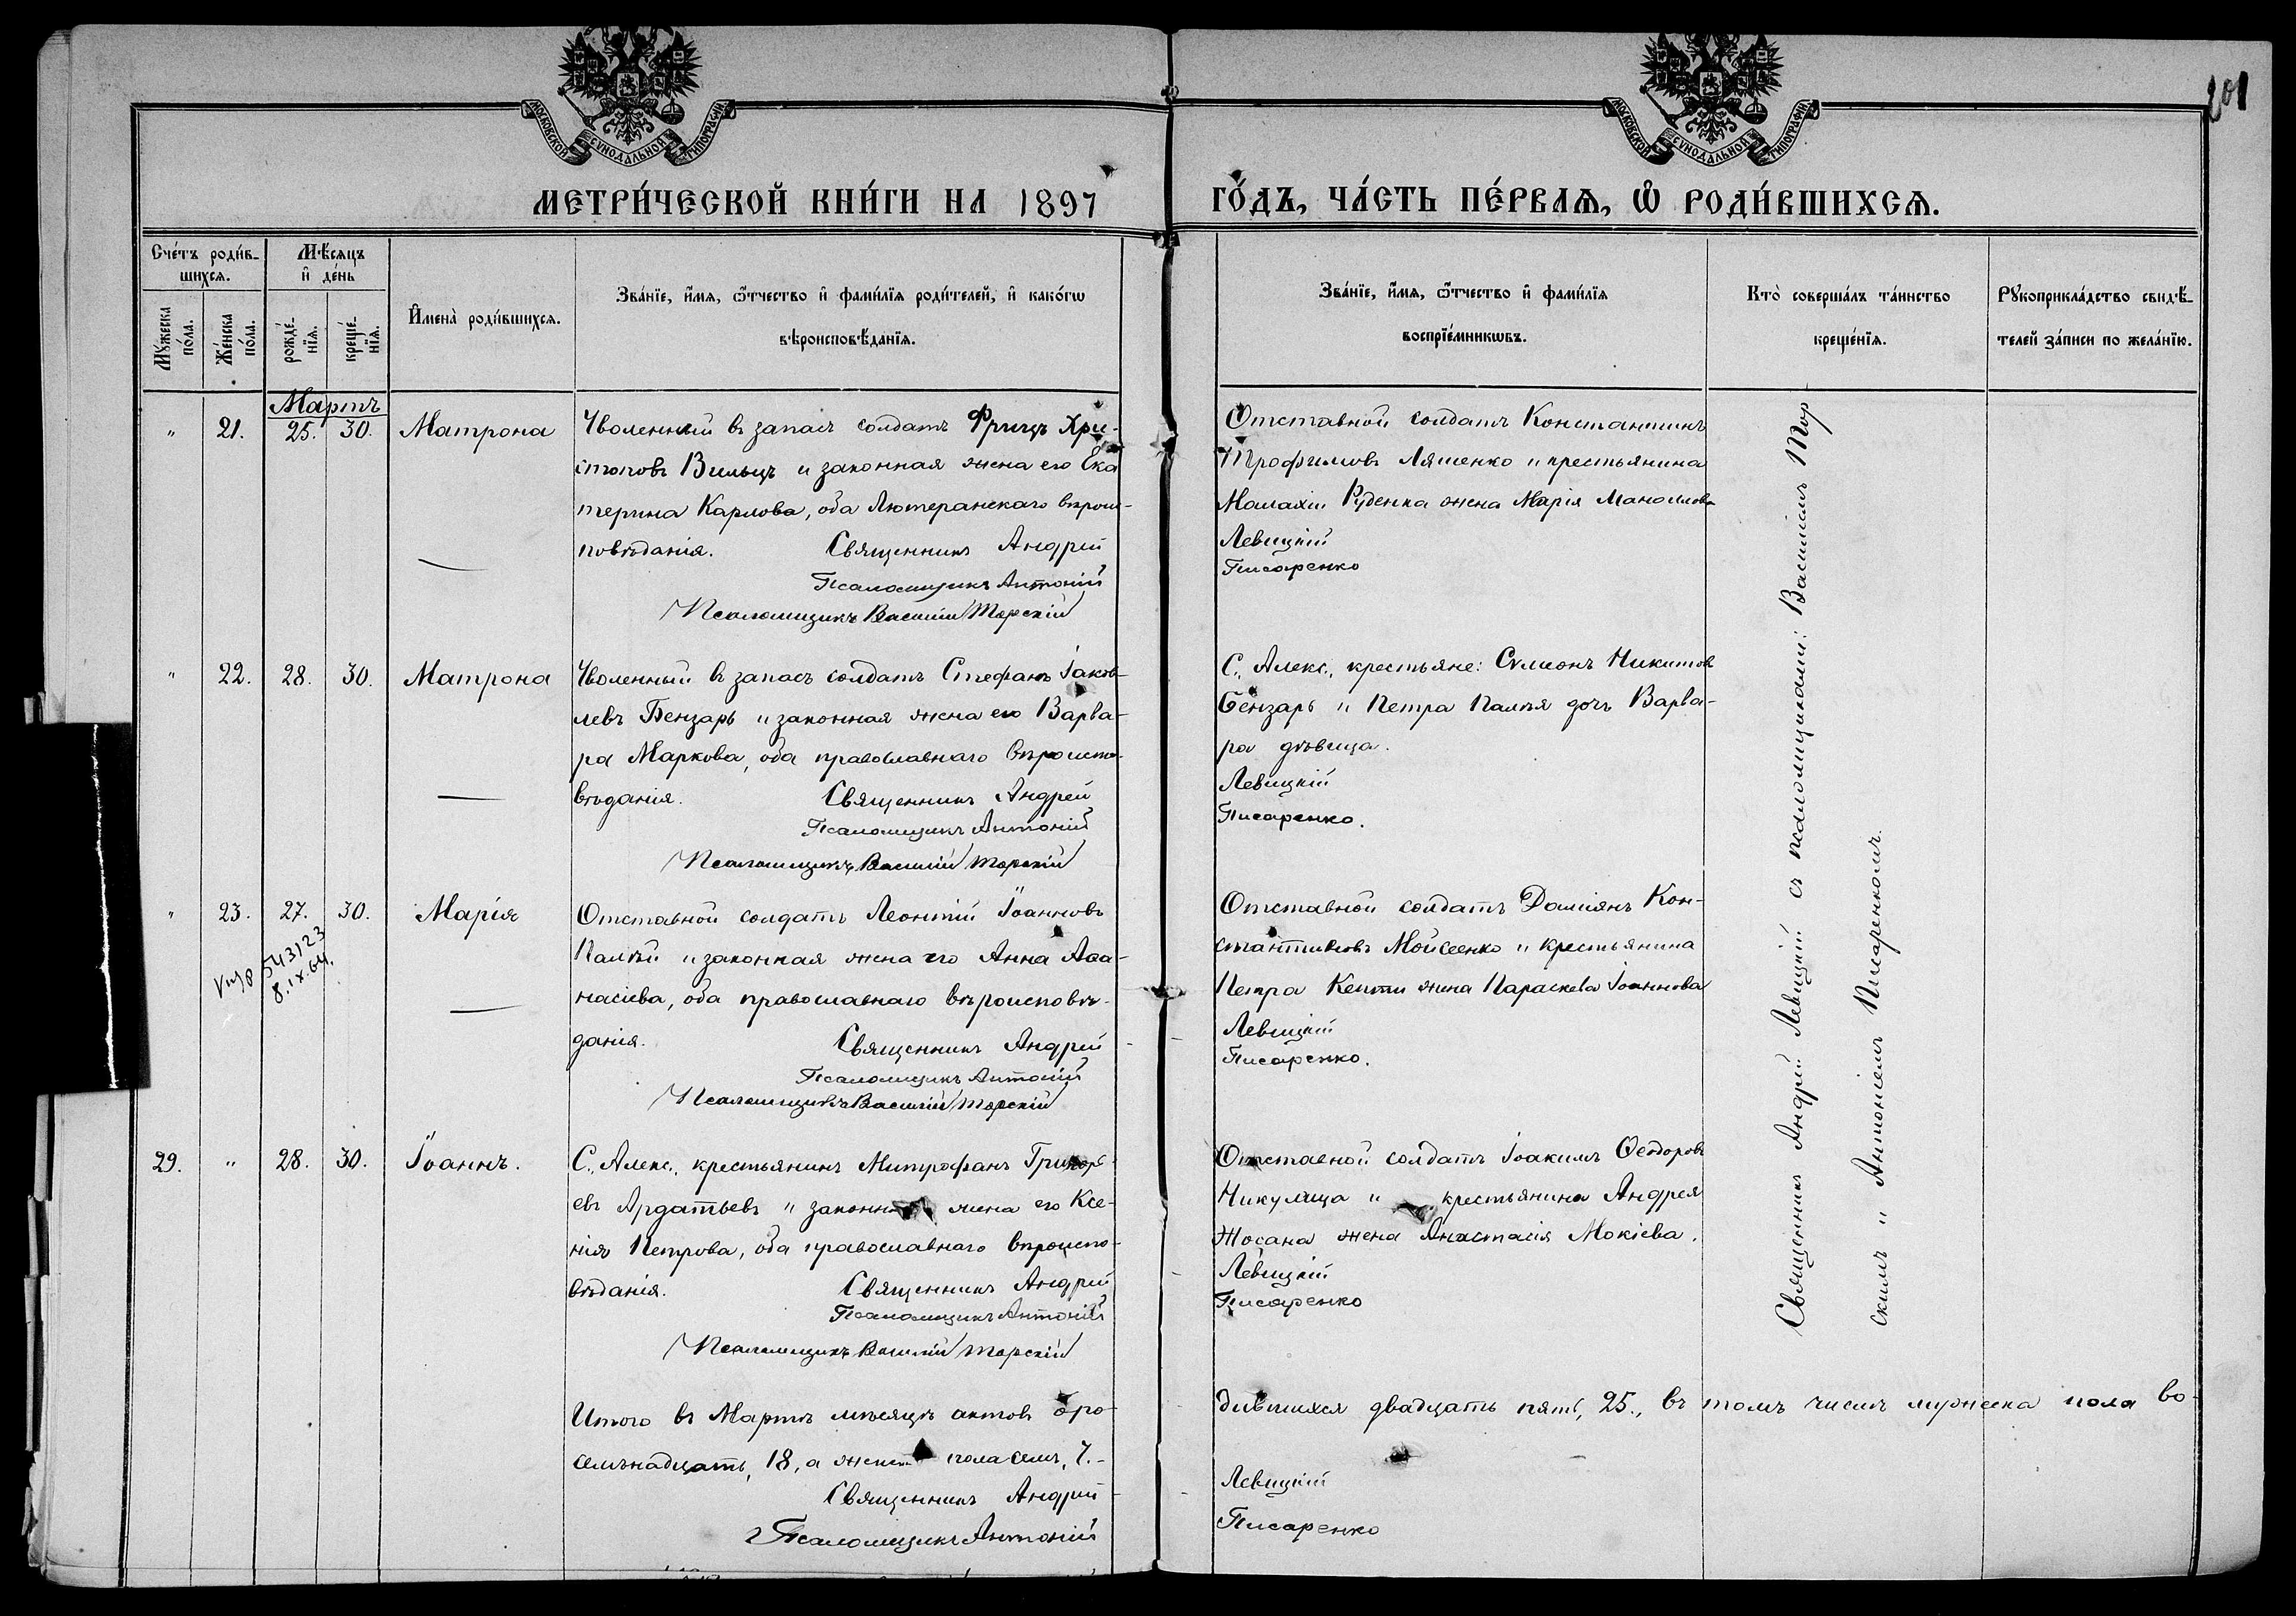 МОСКОВСКОЙ СѴНОДАЛЬНОЙ ТИПОГРАФІИ
МОСКОВСКОЙ СѴНОДАЛЬНОЙ ТИПОГРАФІИ
201
МЕТРИ́ЧЕСКОЙ КНИ́ГИ НА 1897
ГО́ДЪ, ЧА́СТЬ ПЕ́РВАѦ, Ѡ҆ РОДИ́ВШИХСѦ.
Сче́тъ роди́в-
шихся.
Мѣ́сяцъ
и҆ де́нь
Му́жеска
по́ла.
Же́нска
по́ла.
рожде́-
нїя.
креще́-
нїя.
И҆мена̀ роди́вшихся.
Зва́нїе, и҆́мя, ѻ҆́тчество и҆ фами́лїя роди́телей, и҆ како́гѡ
вѣроисповѣ́данїя.
Зва́нїе, и҆́мя, ѻ҆́тчество и҆ фами́лїя
воспрїе́мникѡвъ.
Кто̀ соверша́лъ та́инство
креще́нїя.
Рꙋкоприкла́дство свидѣ́-
телей за́писи по жела́нїю.
Мартъ
" 21. 25. 30. Матрона
Уволенный въ запасъ солдатъ Фрицъ Хри-
стоповъ Вильцъ и законная жена его Ека
терина Карлова, оба Лютеранскаго вѣроис-
повѣданія. Священникъ Андрей
Псаломщикъ Антоній
Псаломщикъ Василій Торскій
Отставной солдатъ Константинъ
Трофимовъ Ляшенко и крестьянина
Малахіи Руденка жена Марія Маноилова
Левицкій
Писаренко
" 22. 28. 30. Матрона
Уволенный въ запасъ солдатъ Стефанъ Іаков-
левъ Бензарь и законная жена его Варва-
ра Маркова, оба православнаго вѣроиспо-
вѣданія. Священникъ Андрей
Псаломщикъ Антоній
Псаломщикъ Василій Торскій
С., Алекс., крестьяне: Сѵмеонъ Никитовъ
Бензарь и Петра Палія дочь Варва-
ра дѣвица.
Левицкій
Писаренко.
" 23. 27. 30. Марія
543123
8.IX.64.
Отставной солдатъ Леонтій Іоанновъ
Палій и законная жена его Анна Аѳа-
насіева, оба православнаго вѣроисповѣ-
данія. Священникъ Андрей
Псаломщикъ Антоній
Псаломщикъ Василій Торскій
Отставной солдатъ Даміянъ Кон-
стантиновъ Мойсеенко и крестьянина
Петра жена Параскева Іоаннова
Левицкій
Писаренко.
29. " 28. 30. Іоаннъ.
С., Алекс., крестьянинъ Митрофанъ Григорь-
евъ Ардатьевъ и законная жена его Ксе-
нія Петрова, оба православнаго вѣроиспо-
вѣданія. Священникъ Андрей
Псаломщикъ Антоній
Псаломщикъ Василій Торскій
Отставной солдатъ Іоакимъ Ѳеодоровъ
Никулица и крестьянина Андрея
Жосана жена Анастасія Мокіева.
Левицкій
Писаренко
Священникъ Андрей Левицкій съ псаломщиками: Василіемъ Тор
скимъ и Антоніемъ Писаренкомъ.
Итого въ Мартѣ мѣсяцѣ актовъ о ро-
дившихся двадцать пять, 25., въ томъ числѣ мужеска пола во-
семьнадцать, 18, а женска пола семь, 7.-
Священникъ Андрей
Левицкій
Псаломщикъ Антоній
Писаренко